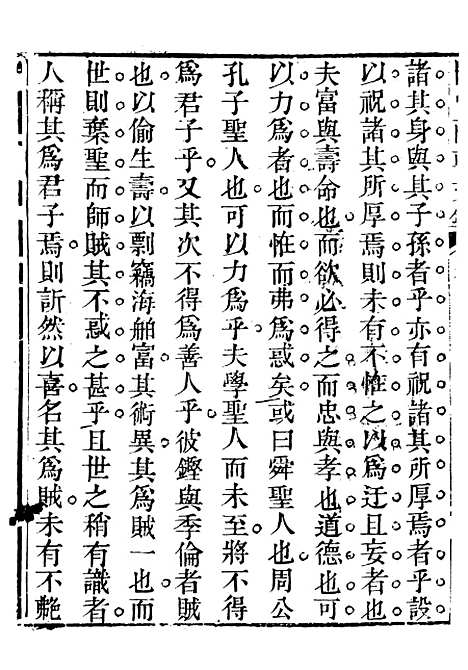 諸其身與其子孫者乎亦有祝諸其所厚焉者乎設
以祝諸其所厚焉則未有不怪之以爲迂且妄者也
夫富與壽命也而欲必得之而忠與孝也道德也可
以力爲者也而怪而弗爲惑矣或曰舜聖人也周公
孔子聖人也可以力爲乎夫學聖人而未至將不得
爲君子乎又其次不得爲善人乎彼鏗與季倫者賊
也以偷生壽以剽竊海舶富其術異其爲賊一也而
世則棄聖而師賊其不惑之甚乎且世之稍有識者
人稱其爲君子焉則訢然以喜名其爲賊未有不艴